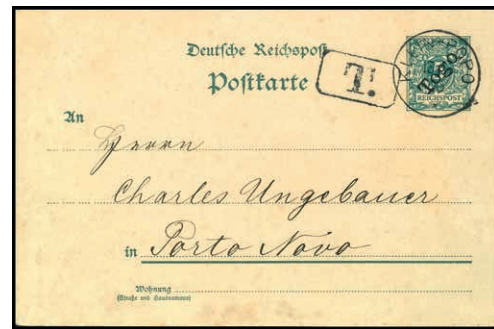 Deutsche Reichspost
Postkarte
T.
KLEIN-POPO
Togo
REICHSPOST
An
Herrn
Charles Ungebauer
in Porto Novo
Wohnung
(Straße und Hausnummer)